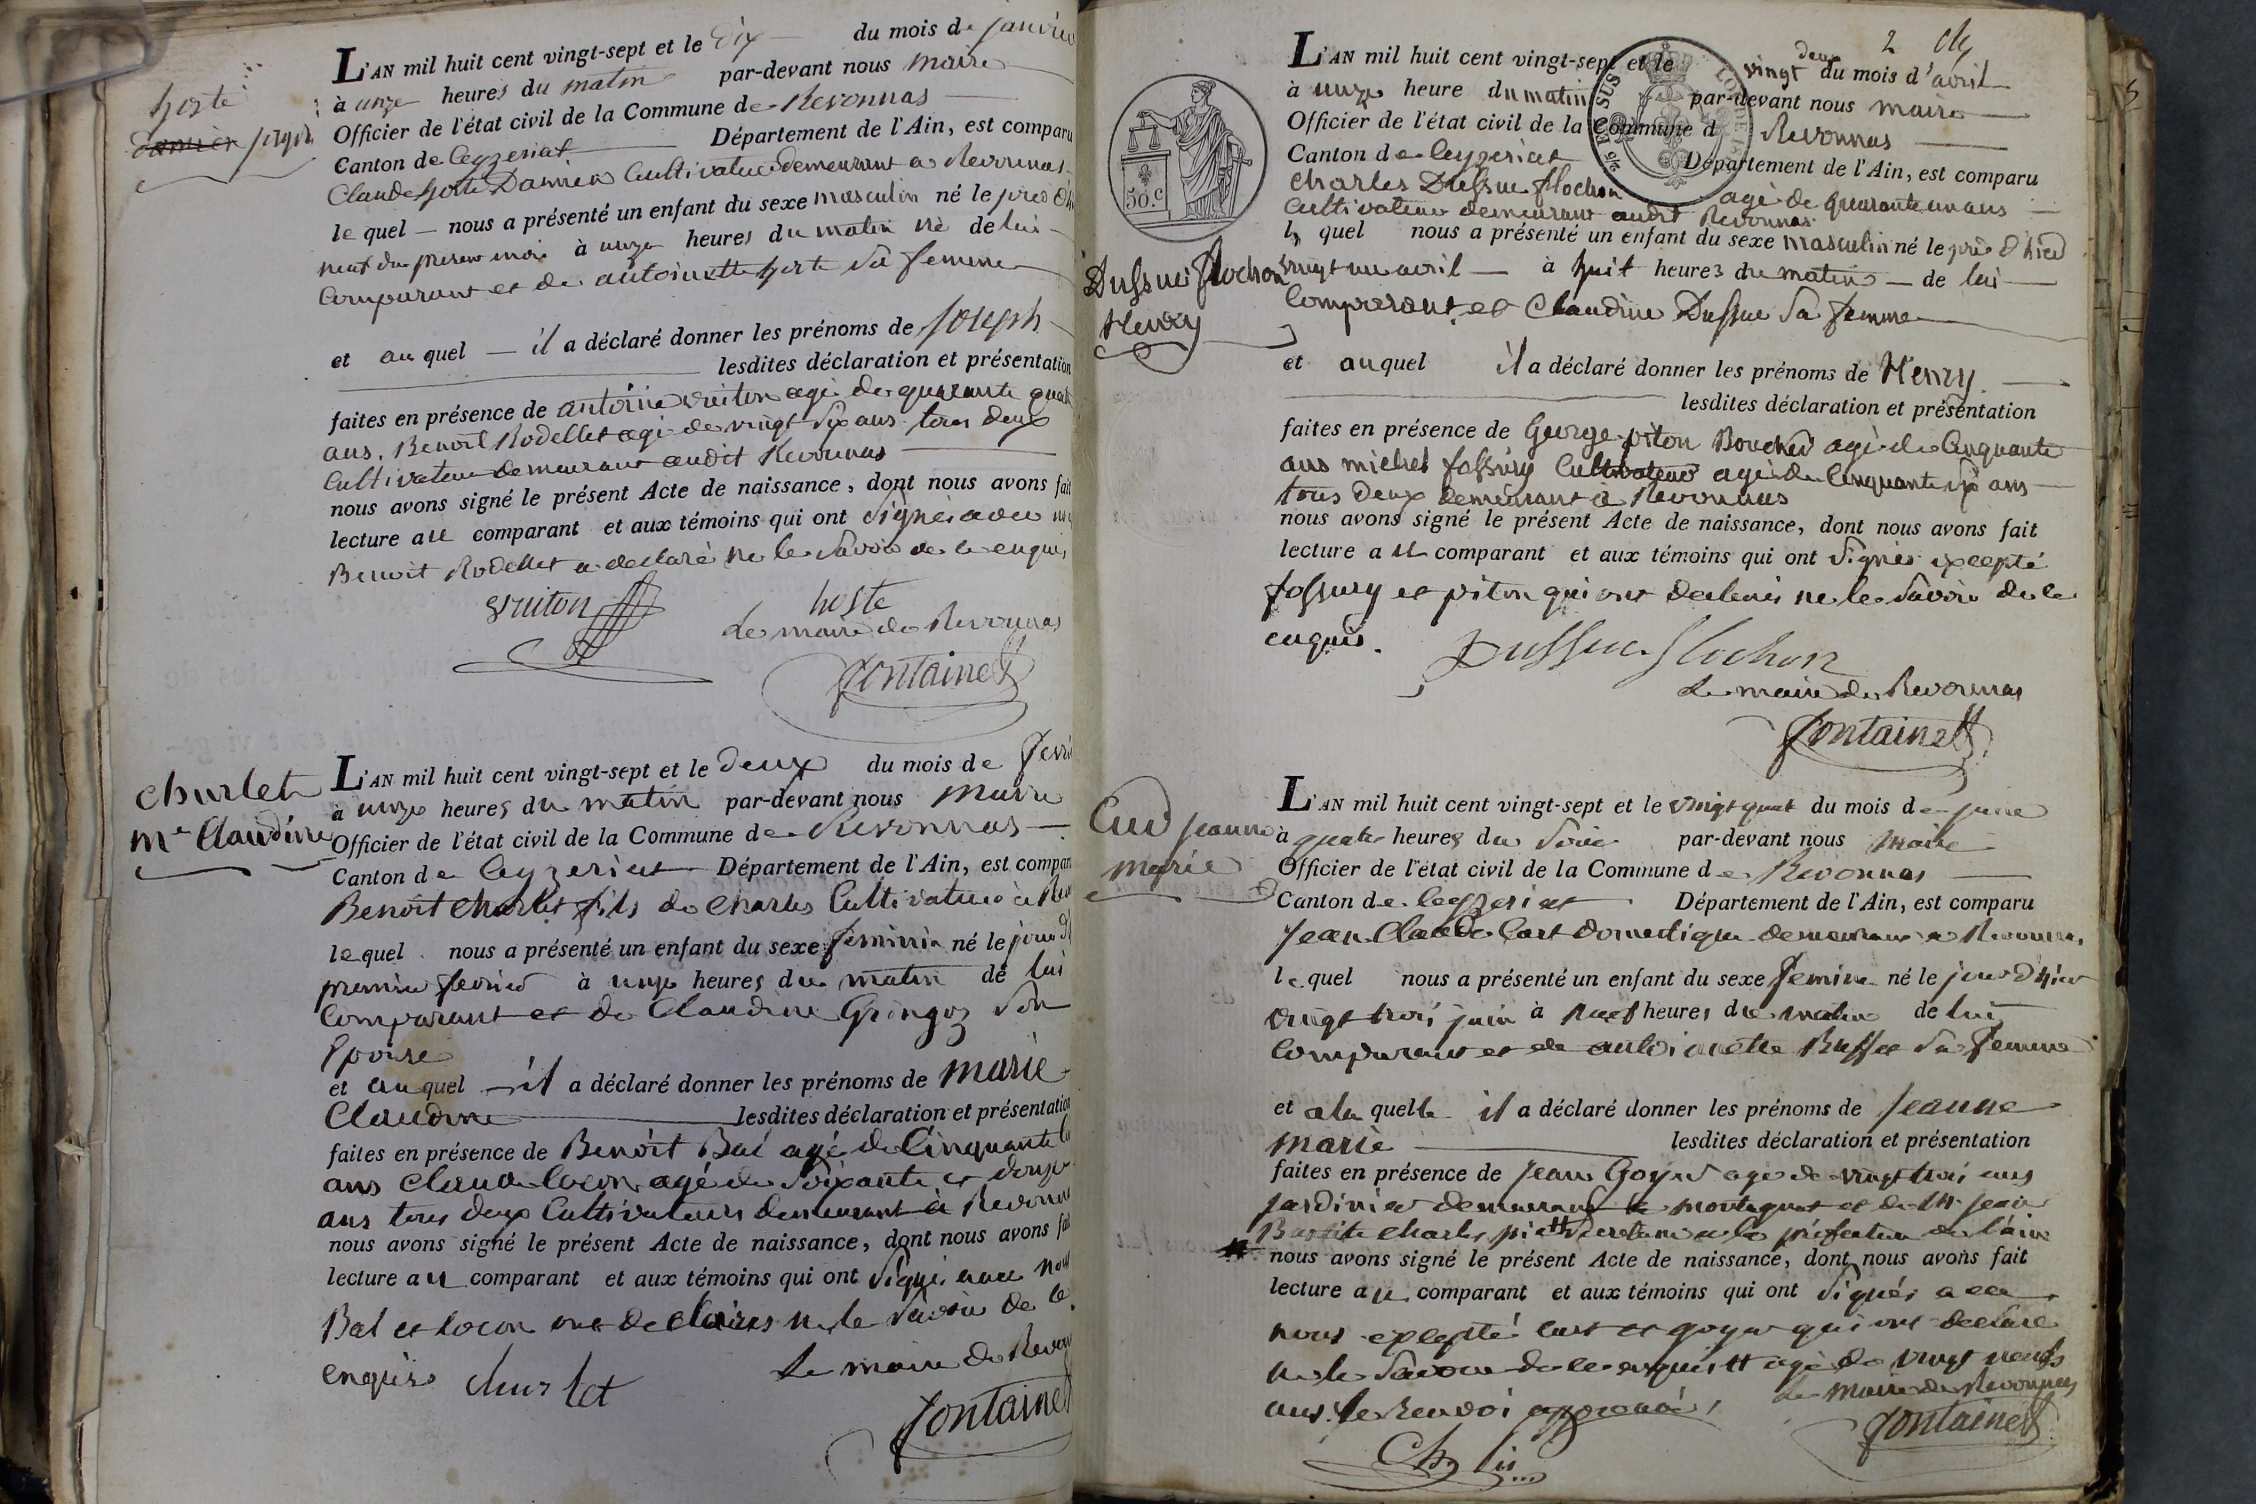 L'AN mil huit cent vingt-sept et le dix du mois de janvier
à unze heures du matin par-devant nous maire
Officier de l'état civil de la Commune de Revonnas
Canton de Ceyzeriat Département de l'Ain, est comparu
Claude hoste Damien Cultivateur demeurant a Revonnas
le quel nous a présenté un enfant du sexe masculin né le
neuf du present mois à unze heures du matin né de lui
Comparant et de antoinette hoste sa femme
et au quel il a déclaré donner les prénoms de joseph
lesdites déclaration et présentation
faites en présence de antoine vuiton agé de quarante
ans. Benoît Rodellet agé de vingt six ans tous deux
Cultivateur demeurant audit Revonnas
nous avons signé le présent Acte de naissance, dont nous avons fait
lecture au comparant et aux témoins qui ont signés avec
Benoit Rodellet a declaré ne le savoir de ce enquis
vuiton hoste
Le maire de Revonnas
fontaine
hoste
Damien joseph
L'AN mil huit cent vingt-sept et le deux du mois de
à unze heures du matin par-devant nous Maire
Officier de l'état civil de la Commune de Revonnas
Canton de Ceyzeriat Département de l'Ain, est
Benoît Charlet fils de Charles Cultivateur à
le quel nous a présenté un enfant du sexe feminin né le jour
premier fevrier à unze heures du matin de lui
Comparant et de Claudine Gringoz son
Epouse
et au quel il a déclaré donner les prénoms de marie
Claudine lesdites déclaration et présentation
faites en présence de Benoît Bal agé de Cinquante
ans Claude locon agé de soixante et douze
ans tous deux Cultivateurs demeurant à Revonnas
nous avons signé le présent Acte de naissance, dont nous avons
lecture au comparant et aux témoins qui ont signé avec nous
Bal et locon ont declairés ne le savoir de ce
enquis charlet Le maire de
fontaine
charlet
me Claudine
2
L'AN mil huit cent vingt-sept et le vingt deux du mois d'avril
à unze heure du matin par-devant nous maire
Officier de l'état civil de la Commune d Revonnas
Canton de Ceyzeriat Département de l'Ain, est comparu
Charles Dussue flochon agé de quarante un ans
Cultivateur demeurant audit Revonnas
le quel nous a présenté un enfant du sexe masculin né le d'hier
vingt un avril à huit heures du matin de lui
Comparant et Claudine Dussue sa femme
et au quel il a déclaré donner les prénoms de Henry
lesdites déclaration et présentation
faites en présence de George piton Boucher agé de Cinquante
ans michel fossury Cultivateur agé de Cinquante six ans
tous deux demeurant à Revonnas
nous avons signé le présent Acte de naissance, dont nous avons fait
lecture au comparant et aux témoins qui ont signés excepté
fossury et piton qui ont declaré ne le savoir de ce
enquis. Dussue flochon
Le maire de Revonnas
fontaine
50.c
Dussue flochon
Henry
L'AN mil huit cent vingt-sept et le vingt quat du mois de juin
à quatre heures du soir par-devant nous Maire
Officier de l'état civil de la Commune de Revonnas
Canton de Ceyzeriat Département de l'Ain, est comparu
Jean Claude domestique demeurant a Revonnas
le quel nous a présenté un enfant du sexe feminin né le jour d'hier
vingt trois juin à neuf heures du matin de lui
Comparant et de antoinette Buffet sa femme
et a la quelle il a déclaré donner les prénoms de jeanne
marie lesdites déclaration et présentation
faites en présence de jean Goyer agé de vingt trois ans
jardinier demeurant a montagnat et de Mr jean
Baptiste Charles secretaire a la préfecture de l'ain
nous avons signé le présent Acte de naissance, dont nous avons fait
lecture au comparant et aux témoins qui ont signés avec
nous excepté et goyer qui ont declaré
ne le savoir de ce enquis agé de vingt neufs
ans. le Renvoi approuvé, Le Maire de Revonnas
fontaine
jeanne
marie